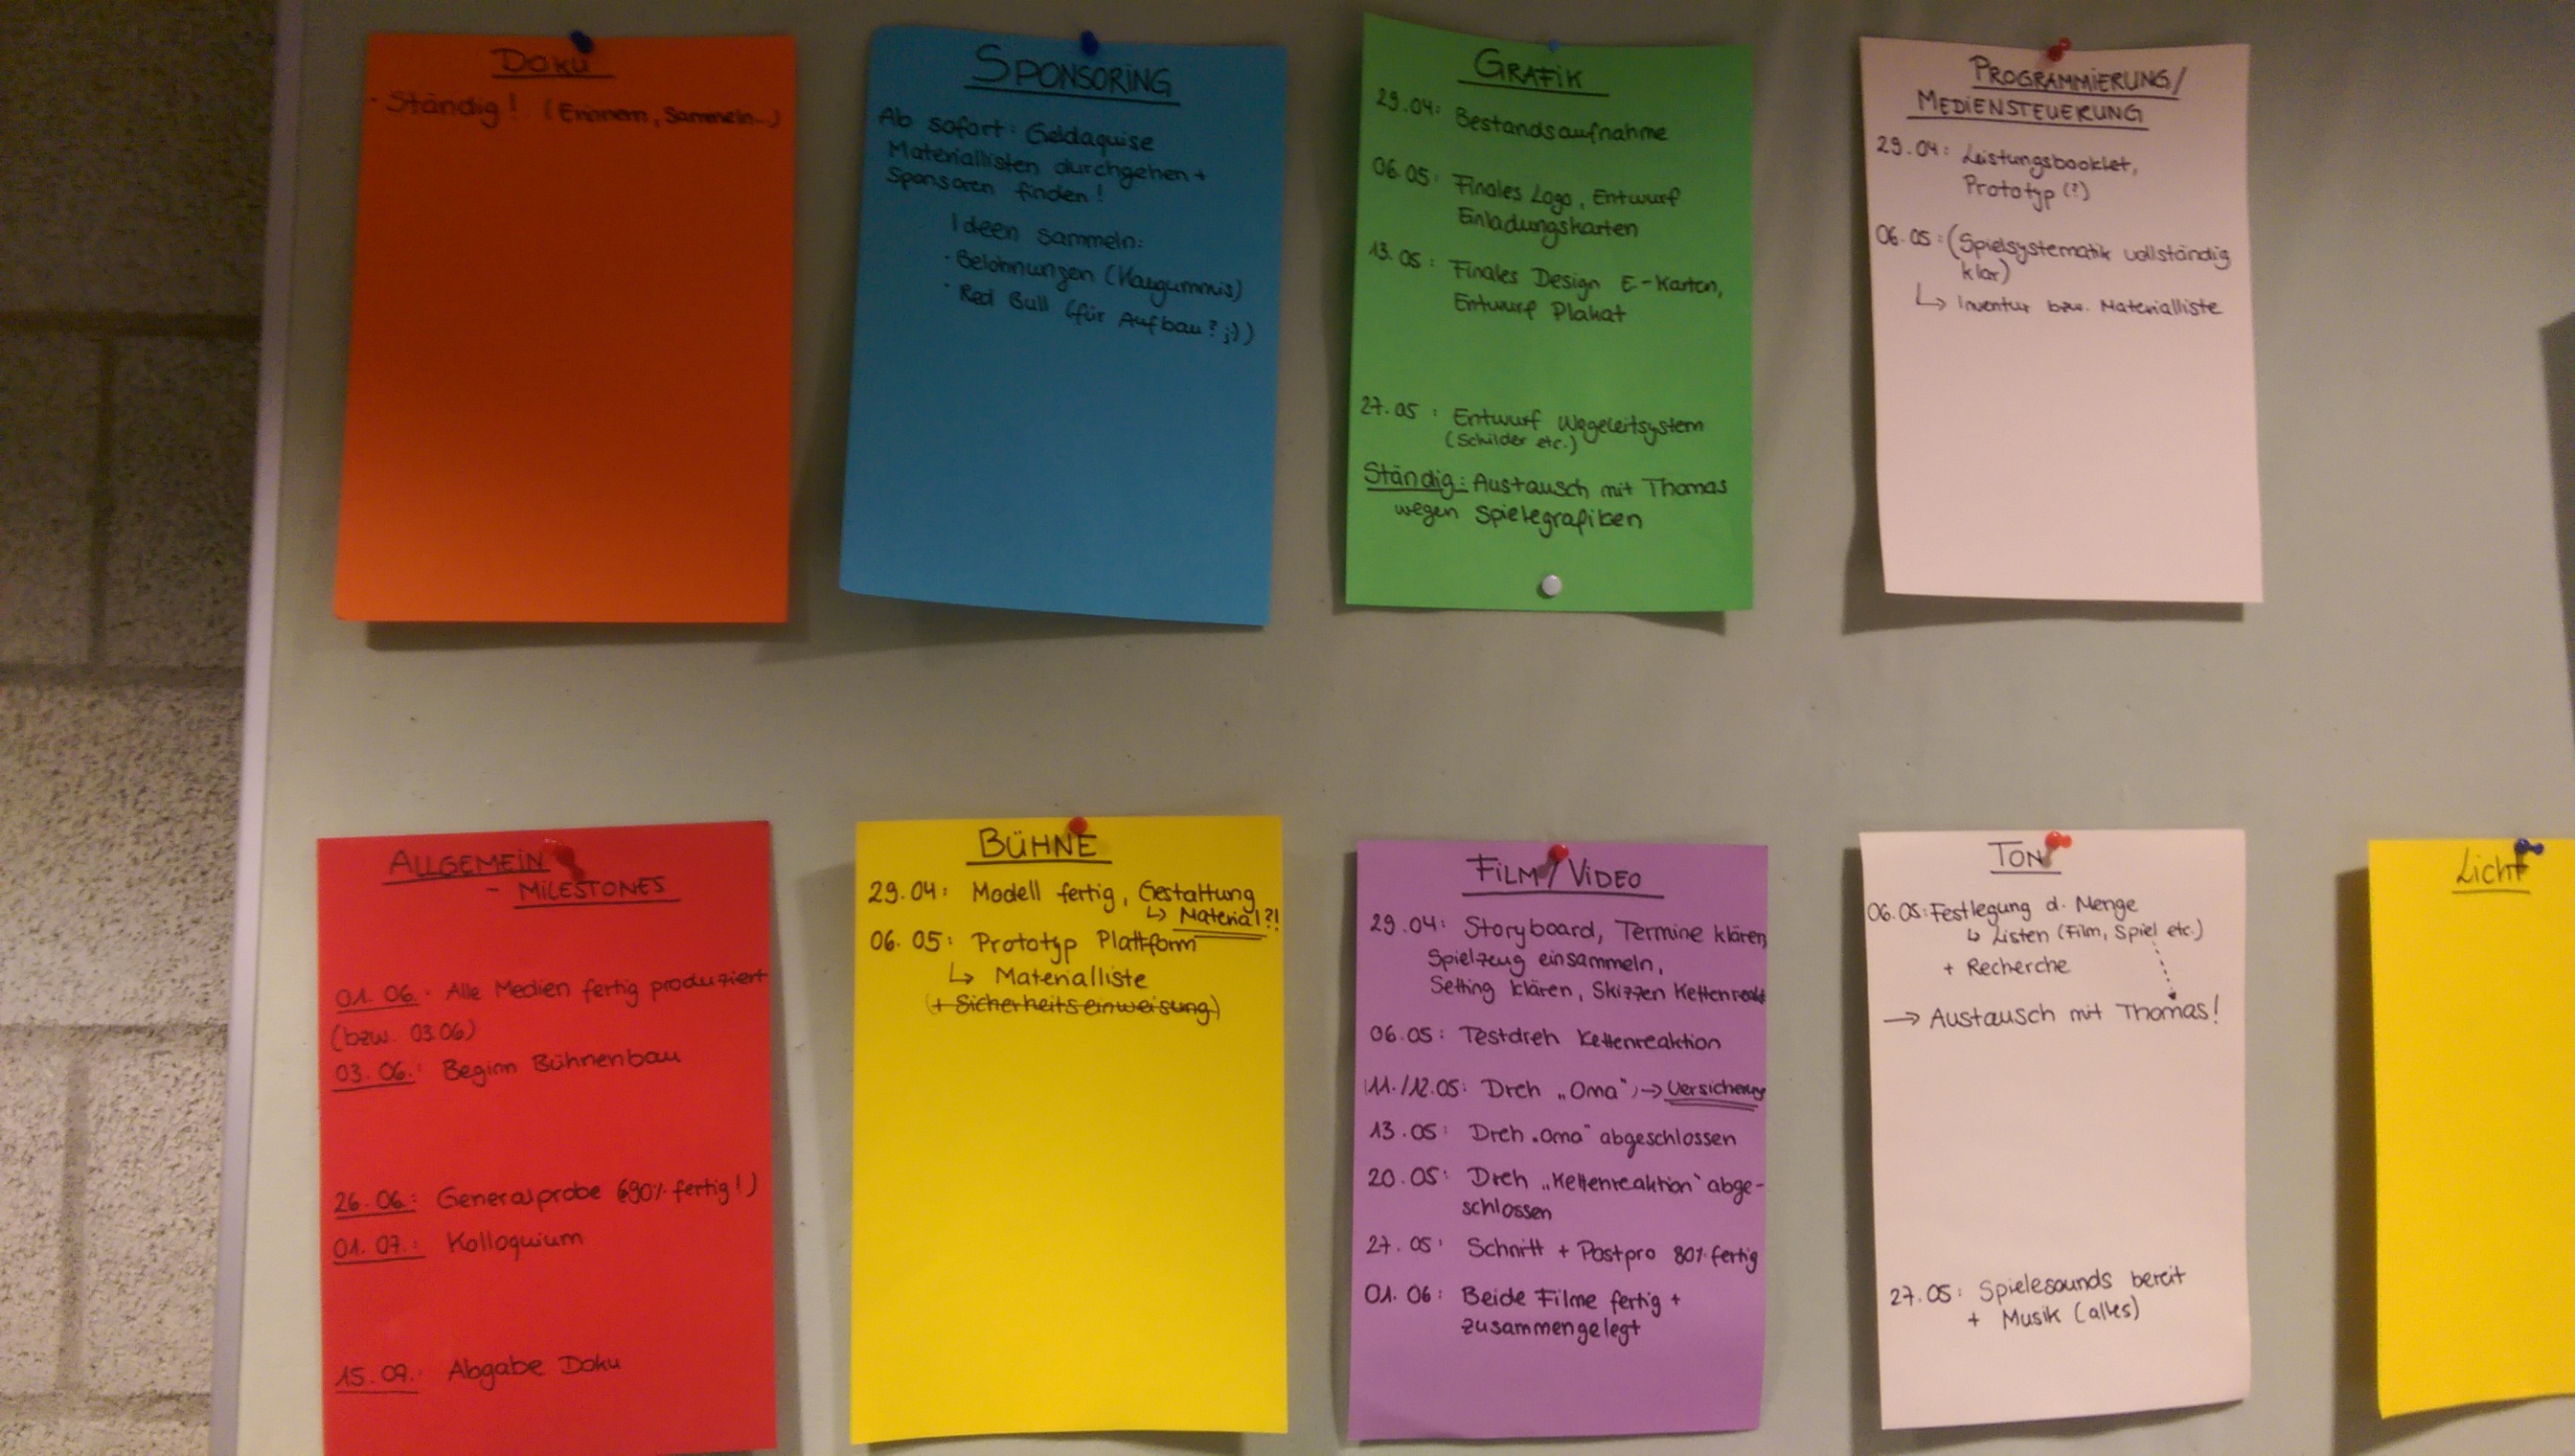 DOKU
- Ständig! (Erinnern, Sammeln...)
SPONSORING
Ab sofort: Geldaquise
Materiallisten durchgehen +
Sponsoren finden!
Ideen sammeln:
· Belohnungen (Kaugummis)
· Red Bull (für Aufbau? ;))
GRAFIK
29.04: Bestandsaufnahme
06.05: Finales Logo, Entwurf
Einladungskarten
13.05: Finales Design E-Karten,
Entwurf Plakat
27.05: Entwurf Wegeleitsystem
(Schilder etc.)
Ständig: Austausch mit Thomas
wegen Spielegrafiken
PROGRAMMIERUNG/
MEDIENSTEUERUNG
29.04: Leistungsbooklet,
Prototyp (?)
06.05: (Spielsystematik vollständig
klar)
↳ Inventur bzw. Materialliste
ALLGEMEIN
- MILESTONES
01.06.: Alle Medien fertig produziert
(bzw. 03.06)
03.06.: Beginn Bühnenbau
26.06.: Generalprobe (90% fertig!)
01.07.: Kolloquium
15.09.: Abgabe Doku
BÜHNE
29.04: Modell fertig, Gestaltung
↳ Material?!
06.05: Prototyp Plattform
↳ Materialliste
(+ Sicherheitseinweisung)
FILM/VIDEO
29.04: Storyboard, Termine klären,
Spielzeug einsammeln,
Setting klären, Skizzen Kettenreakt
06.05: Testdreh Kettenreaktion
11./12.05: Dreh „Oma“, → Versicherung
13.05: Dreh „Oma“ abgeschlossen
20.05: Dreh „Kettenreaktion“ abge-
schlossen
27.05: Schnitt + Postpro 80% fertig
01.06: Beide Filme fertig +
zusammengelegt
TON
06.05: Festlegung d. Menge
↳ Listen (Film, Spiel etc.)
+ Recherche
→ Austausch mit Thomas!
27.05: Spielesounds bereit
+ Musik (alles)
Licht